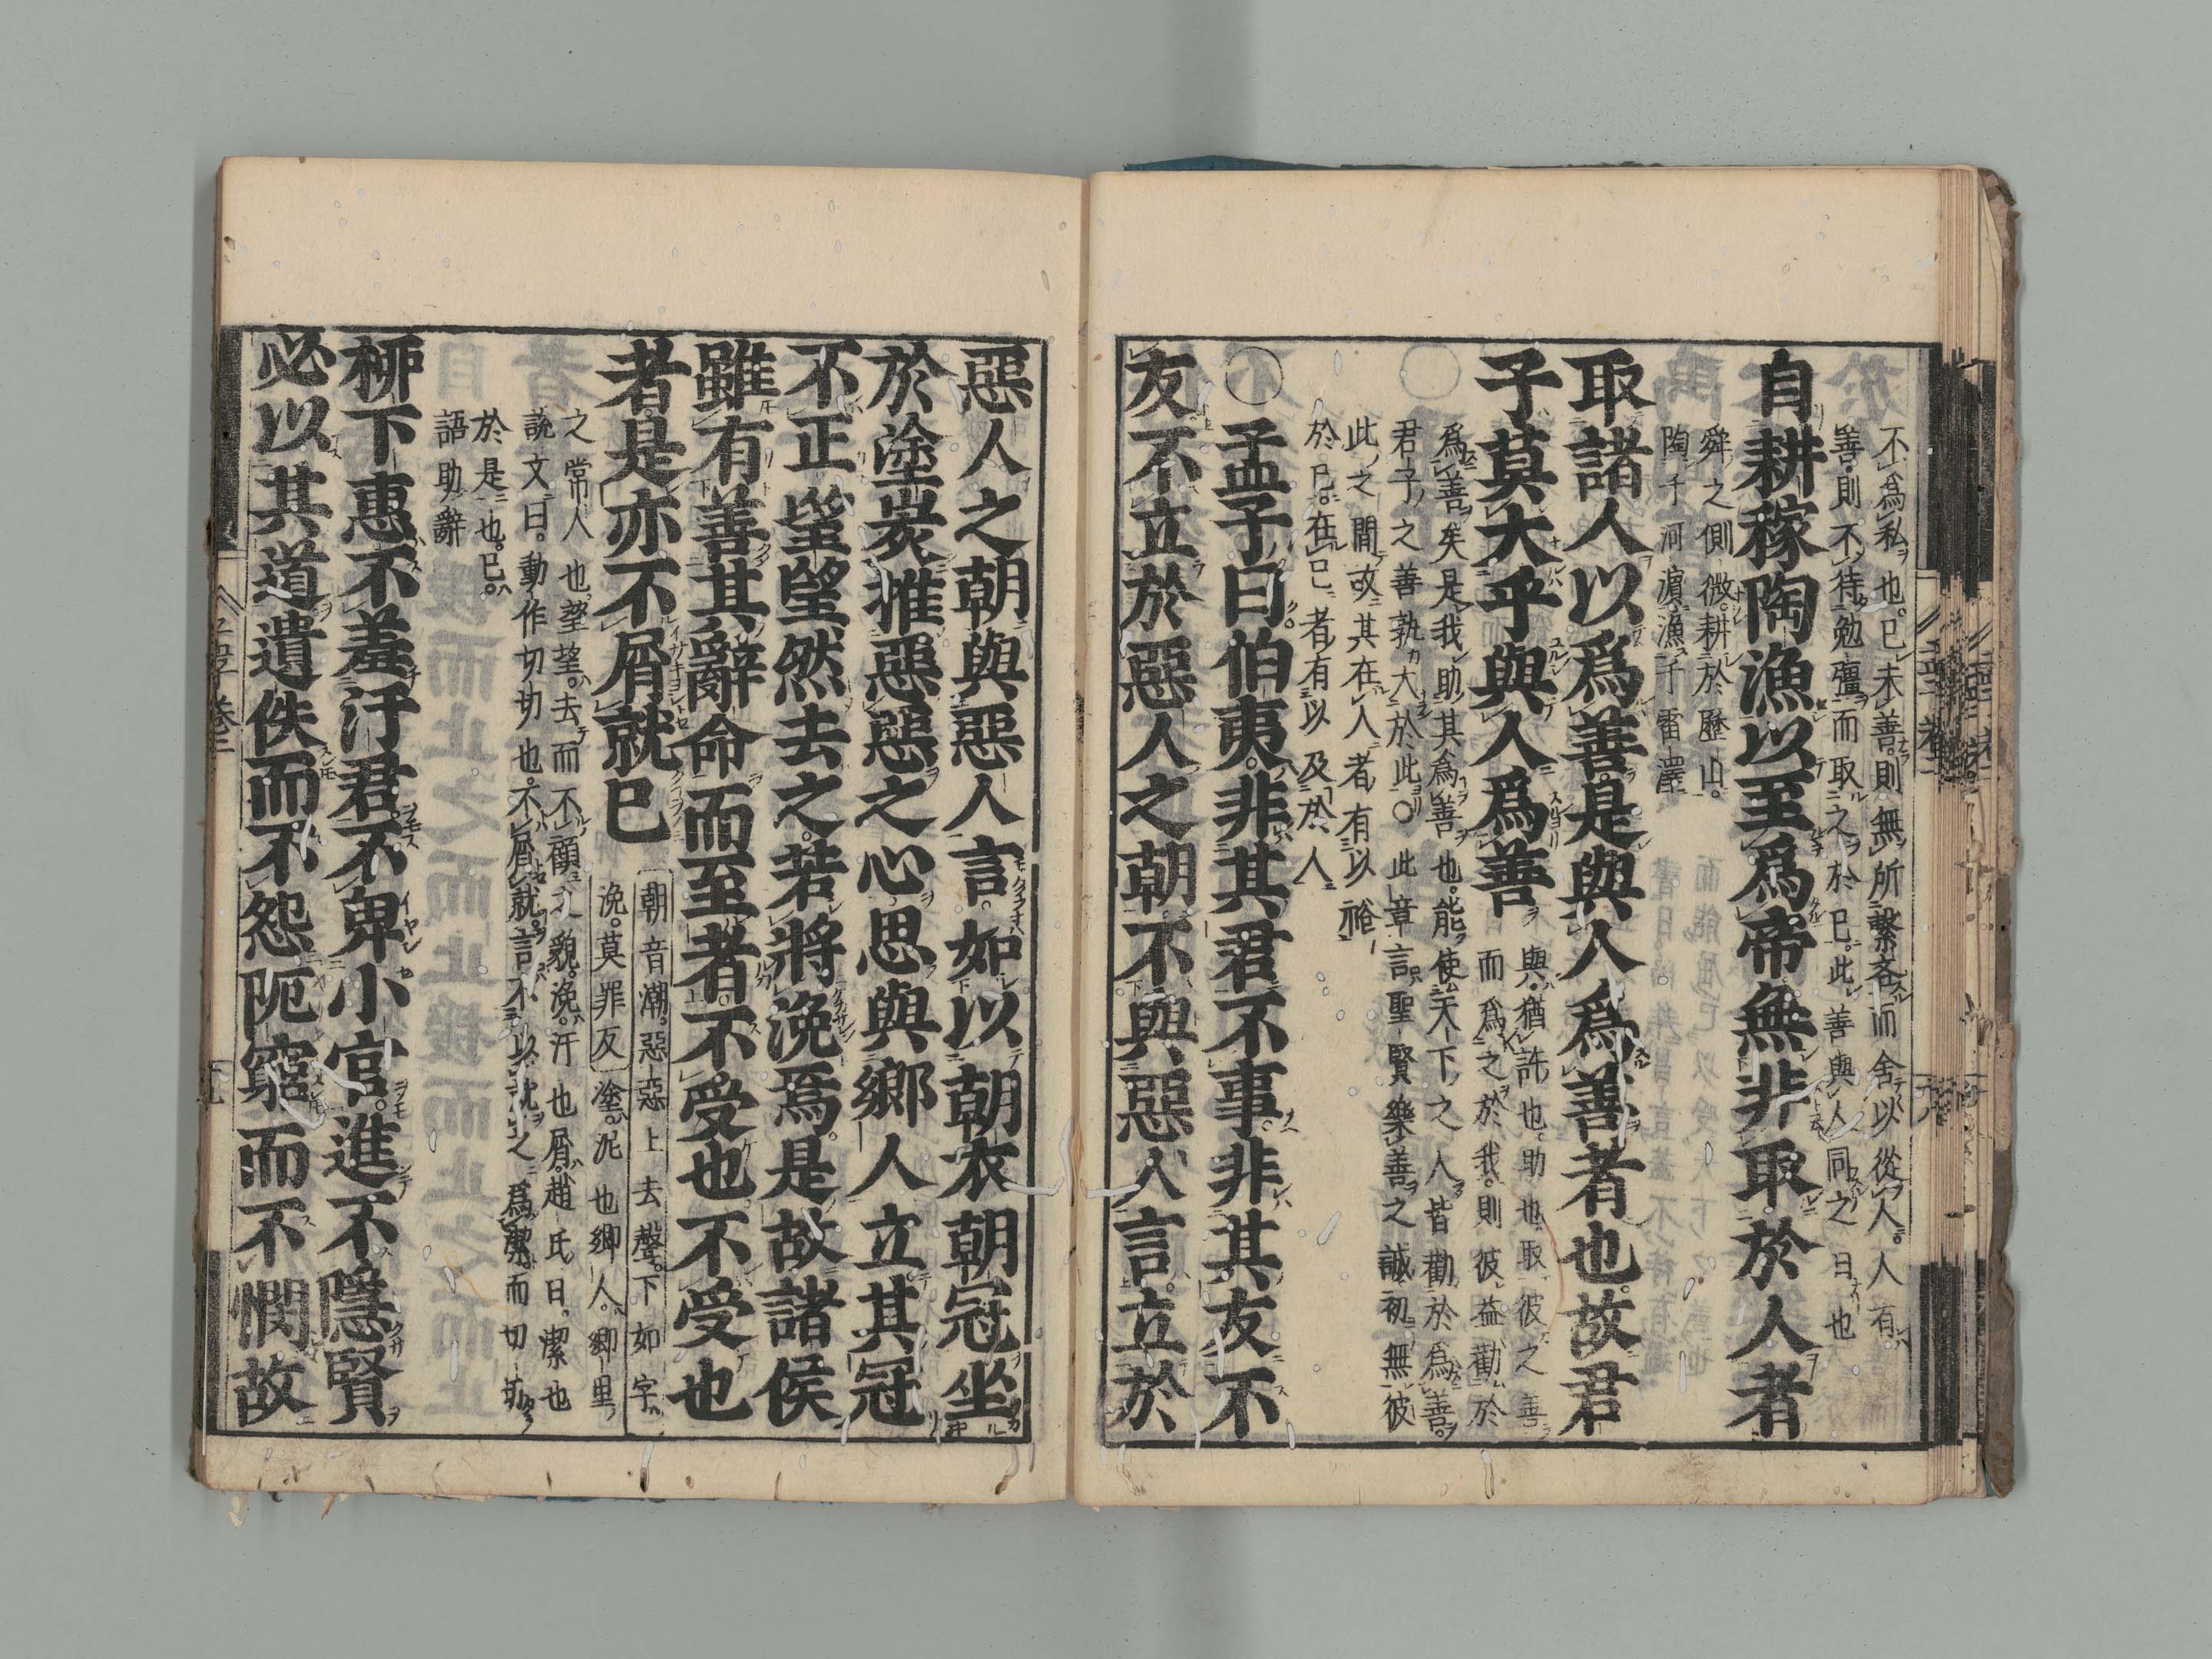 不爲私也。已未善。則無所繫吝而舍以從人。人有
善。則不待勉彊而取之於己。此善與人同之目也
自耕稼陶漁以至爲帝無非取於人者
舜之側微。耕於歷山。
陶于河濵。漁于雷澤
取諸人以爲善是與人爲善者也。故君
子莫大乎與人爲善
與猶許也。助也。取彼之善
而爲之於我。則彼益勸於
爲善矣是我助其爲善也。能使天下之人皆勸於爲善。
君子之善孰大於此。○此章言聖賢樂善之誠初無彼
此之間故其在人者有以裕
於已。在已者有以及於人
○孟子曰。伯夷。非其君不事。非其友不
友不立於惡人之朝不與惡人言。立於
惡人之朝與惡人言。如以朝衣朝冠坐
於塗炭推惡惡之心思與鄉人立其冠
不正望望然去之。若將浼焉。是故諸侯
雖有善其辭命而至者。不受也。不受也
者。是亦不屑就已
朝音潮。惡惡上去聲。下如字
浼。莫罪反
塗。泥也鄉人。鄉里
之常人也。望望。去而不顧之貌。浼。汙也屑。趙氏曰。潔也
說文曰。動作切切也。不屑就。言不以就之爲潔。而切切
於是也。已。
語助辭
柳下惠不羞汙君。不卑小官。進不隱賢
必以其道遺佚而不怨阨窮而不憫故